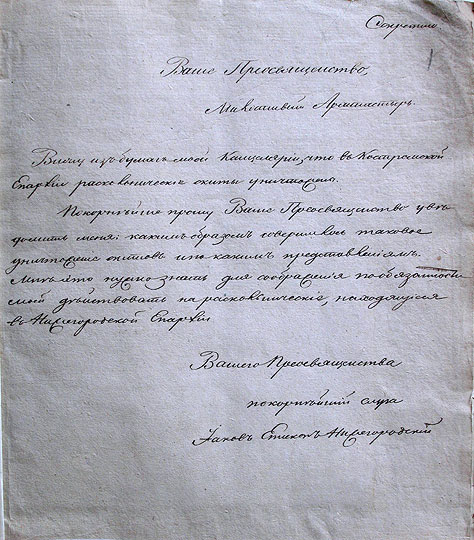 Секретно
Ваше Преосвященство,
Милостивый Архипастырь.
Вижу изъ бумагъ моей Канцеляріи, что въ Костромской
Епархіи раскольническіе скиты уничтожены.
Покорнѣйше прошу Ваше Преосвященство увѣ-
домить меня: какимъ образомъ совершилось таковое
уничтоженіе скитовъ и по какимъ представленіямъ.
Мнѣ это нужно знать для соображенія по обязанности
моей дѣйствовать на раскольническіе, находящіеся
въ Нижегородской Епархіи
Вашего Преосвященства
покорнѣйшій слуга
Іаковъ Епископъ Нижегородскій